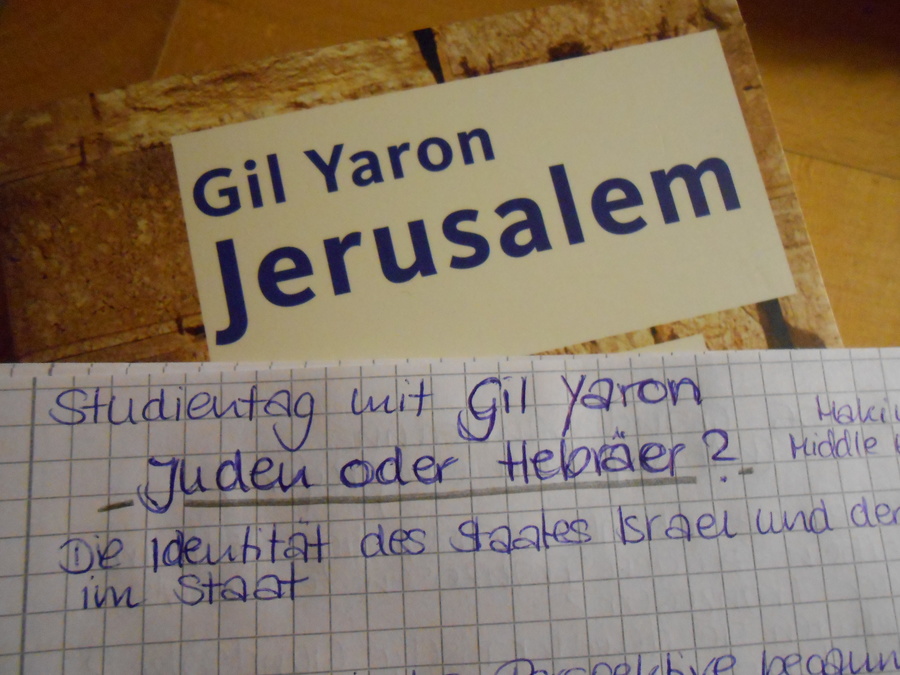 Gil Yaron
Jerusalem
Studientag mit Gil Yaron
- Juden oder Hebräer? -
Middle
Die Identität des Staates Israel und der
im Staat
Perspektive